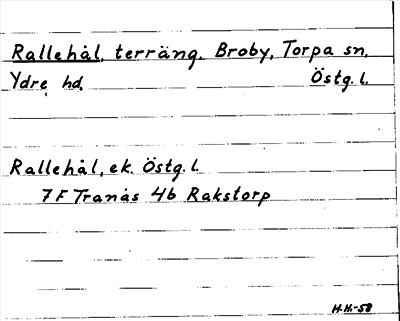 Rallehål, terräng. Broby, Torpa sn,
Ydre hd. Östg. l.
Rallehål, ek. Östg. l.
7 F Tranås 4b Rakstorp
H.H.-58